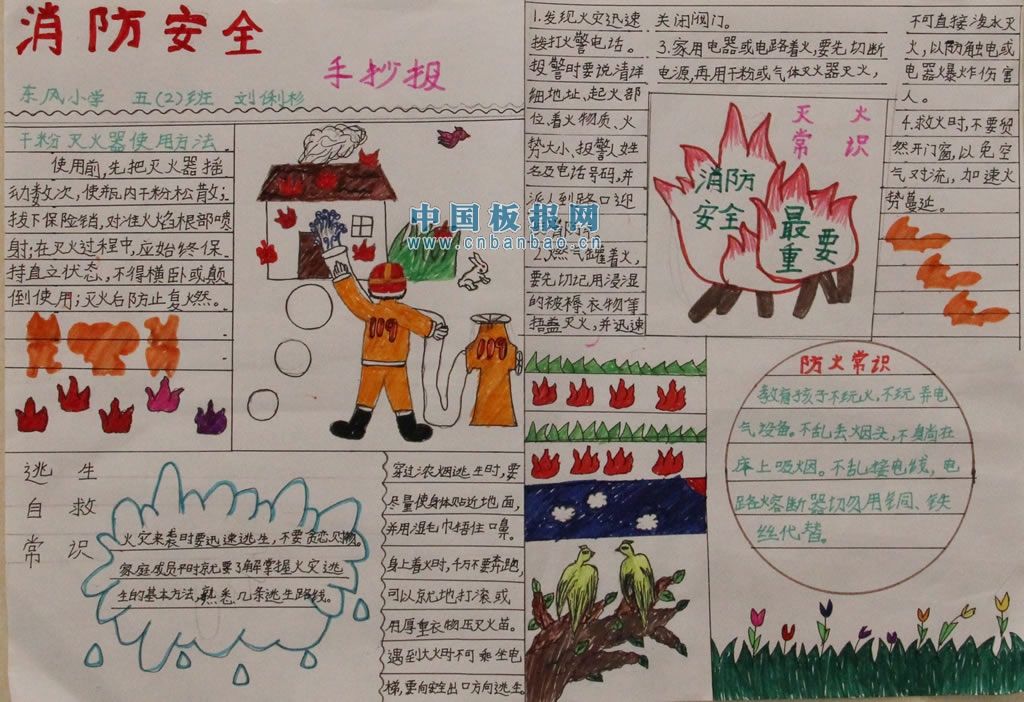 消防安全
手抄报
东风小学 五(2)班 刘俐杉
干粉灭火器使用方法
使用前,先把灭火器摇
动数次,使瓶内干粉松散;
拔下保险销,对准火焰根部喷
射;在灭火过程中,应始终保
持直立状态,不得横卧或颠
倒使用;灭火后防止复燃。
中国板报网
www.cnbanbao.cn
119
119
逃生
自救
常识
火灾来袭时要迅速逃生,不要贪恋财物。
家庭成员平时就要了解掌握火灾逃
生的基本方法,熟悉几条逃生路线。
穿过浓烟逃生时,要
尽量使身体贴近地面,
并用湿毛巾捂住口鼻。
身上着火时,千万不要奔跑,
可以就地打滚或
用厚重衣物压灭火苗。
遇到火灾时不可乘坐电
梯,要向安全出口方向逃生。
1.发现火灾迅速
拨打火警电话。
报警时要说清详
细地址、起火部
位、着火物质、火
势大小、报警人姓
名及电话号码,并
派人到路口迎
2.燃气罐着火,
要先切记用浸湿
的被褥、衣物等
捂盖灭火,并迅速
关闭阀门。
3.家用电器或电路着火,要先切断
电源,再用干粉或气体灭火器灭火,
不可直接泼水灭
火,以防触电或
电器爆炸伤害
人。
4.救火时,不要贸
然开门窗,以免空
气对流,加速火
势蔓延。
灭火
常识
消防
安全
最
重要
防火常识
教育孩子不玩火,不玩弄电
气设备。不乱丢烟头,不躺在
床上吸烟。不乱接电线,电
路熔断器切勿用铜、铁
丝代替。